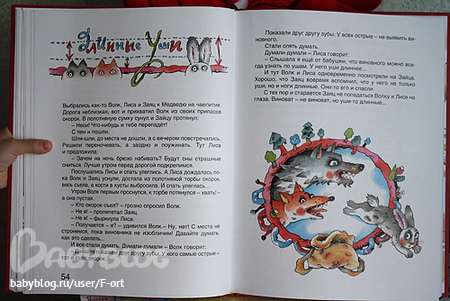 Длинные Уши
Выбрались как-то Волк, Лиса и Заяц к Медведю на чаепитие.
Дорога неблизкая, вот и прихватил Волк из своих припасов
окорок. В потютную сумку сунул и Зайцу протянул:
— Неси! Что-нибудь и тебе перепадёт!
С тем и пошли.
Шли-шли, до места не дошли, а с вечером повстречались.
Решили переночевать, а заодно и подкрепиться. Тут Лиса
и предложила:
— Зачем на ночь брюхо набивать? Будут сны страшные
сниться. Лучше утром перед дорогой подкрепимся.
Послушались Лису и спать улеглись. А Лиса дождалась, пока
Волк и Заяц уснули, достала из торбы окорок,
весь съела, а кости в кусты выбросила. И спать улеглась...
Утром Волк первым проснулся, к торбе потянулся — хвать! —
а она пустая.
— Кто окорок съел? — грозно спросил Волк.
— Не я! — пролепетал Заяц.
— Не я! — фыркнула Лиса.
— Получается — я? — удивился Волк.— Ну, нет! С места не
стронемся, пока виновника не изобличим! Давайте думать,
как это сделать...
И все стали думать. Думали-думали — Волк говорит:
— Давайте покажем друг другу зубы. У кого самые острые —
тот и съел окорок.
54
Показали друг другу зубы. У всех острые — не выявить виновного.
Стали опять думать.
Думали-думали — Лиса говорит:
— Слышала я ещё от бабушки, что виновного можно всегда
узнать по ушам. У него уши длинные...
И тут Волк и Лиса одновременно посмотрели на Зайца.
Хорошо, что Заяц вовремя вспомнил, что у него не только
уши, но и ноги длинные. Они-то его и спасли.
С тех пор и старается Заяц не попадаться Волку и Лисе на
глаза. Виноват — не виноват, но уши-то длинные...
BABYBLOG
babyblog.ru/user/F-ort